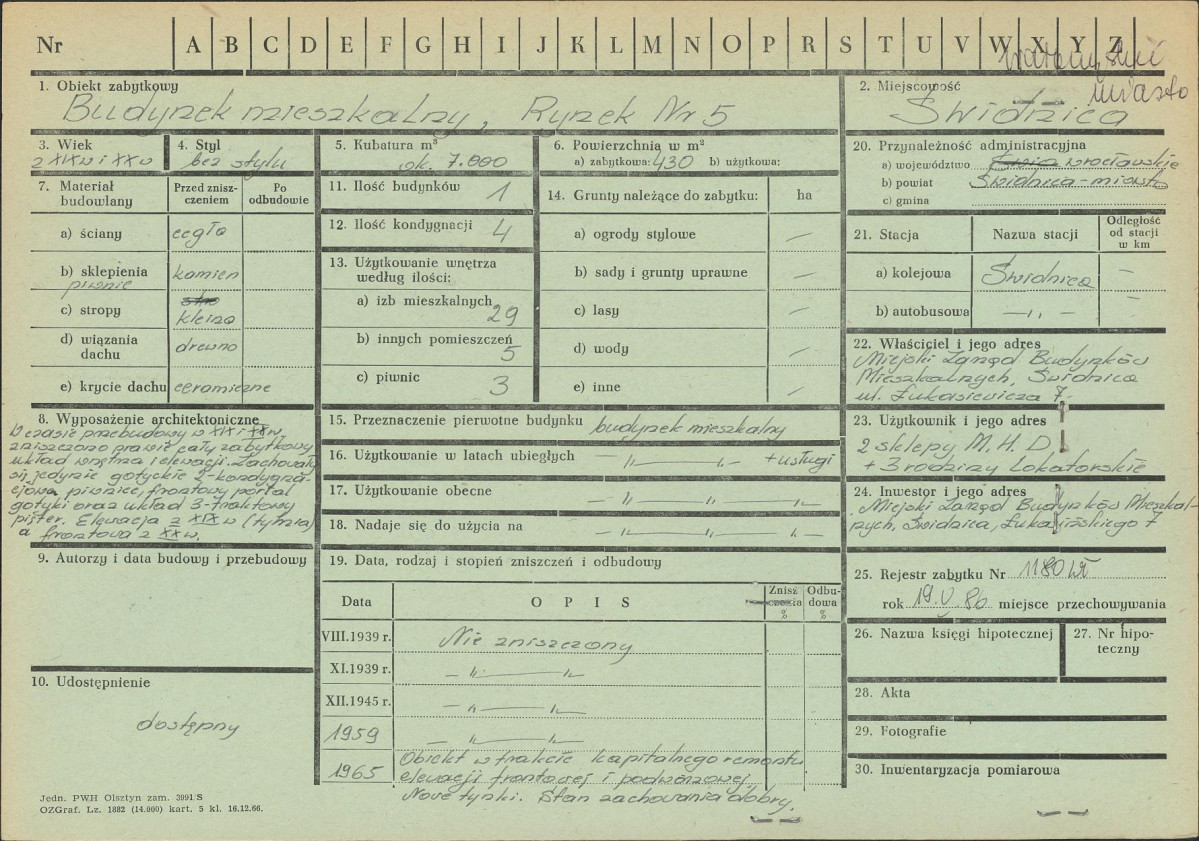 Nr A B C D E F G H I J K L M N O P R S T U V W X Y Z
miasto
1. Obiekt zabytkowy
Budynek mieszkalny, Rynek Nr 5
2. Miejscowość
Świdnica
3. Wiek
z XIX w i XX w
4. Styl
bez stylu
5. Kubatura m³
ok. 7.000
6. Powierzchnia w m²
a) zabytkowa: 430 b) użytkowa:
20. Przynależność administracyjna
a) województwo wrocławskie
b) powiat Świdnica-miasto
c) gmina
7. Materiał budowlany
Przed zniszczeniem
Po odbudowie
a) ściany cegła
b) sklepienia kamien
piwnic
c) stropy kleina
d) wiązania dachu drewno
e) krycie dachu ceramiczne
11. Ilość budynków 1
12. Ilość kondygnacji 4
13. Użytkowanie wnętrza
według ilości:
a) izb mieszkalnych 29
b) innych pomieszczeń 5
c) piwnic 3
14. Grunty należące do zabytku: ha
a) ogrody stylowe —
b) sady i grunty uprawne —
c) lasy —
d) wody —
e) inne —
21. Stacja Nazwa stacji
Odległość
od stacji
w km
a) kolejowa Świdnica —
b) autobusowa —„—
22. Właściciel i jego adres
Miejski Zarząd Budynków
Mieszkalnych, Świdnica
ul. Łukasiewicza 7.
8. Wyposażenie architektoniczne
W czasie przebudowy w XIX i XX w.
zniszczono prawie cały zabytkowy
układ wnętrza i elewacji. Zachowały
się jedynie gotyckie 2-kondygna-
cjowe piwnice, frontowy portal
gotyki oraz układ 3-traktowy
pięter. Elewacja z XIX w (tylna)
a frontowa z XX w.
15. Przeznaczenie pierwotne budynku budynek mieszkalny
16. Użytkowanie w latach ubiegłych —„— „— +usługi
17. Użytkowanie obecne —„— „— „—
18. Nadaje się do użycia na —„— „— „—
23. Użytkownik i jego adres
2 sklepy M.H.D.
+ 3 rodziny lokatorskie
24. Inwestor i jego adres
Miejski Zarząd Budynków Mieszkal-
nych, Świdnica, Łukasińskiego 7
9. Autorzy i data budowy i przebudowy
19. Data, rodzaj i stopień zniszczeń i odbudowy
Data OPIS
Zniszczenia
%
Odbudowa
%
VIII.1939 r. Nie zniszczony
XI.1939 r. —„— „—
XII.1945 r. —„— „—
1959 —„— „—
1965 Obiekt w trakcie kapitalnego remontu
elewacji frontowej i podwórzowej
Nowe tynki. Stan zachowania dobry.
25. Rejestr zabytku Nr 1180 Wł
rok 19.V.86 miejsce przechowywania
26. Nazwa księgi hipotecznej
27. Nr hipo-
teczny
10. Udostępnienie
dostępny
28. Akta
29. Fotografie
30. Inwentaryzacja pomiarowa
Jedn. PWH Olsztyn zam. 3991/S
OZGraf. Lz. 1882 (14.000) kart. 5 kl. 16.12.66.